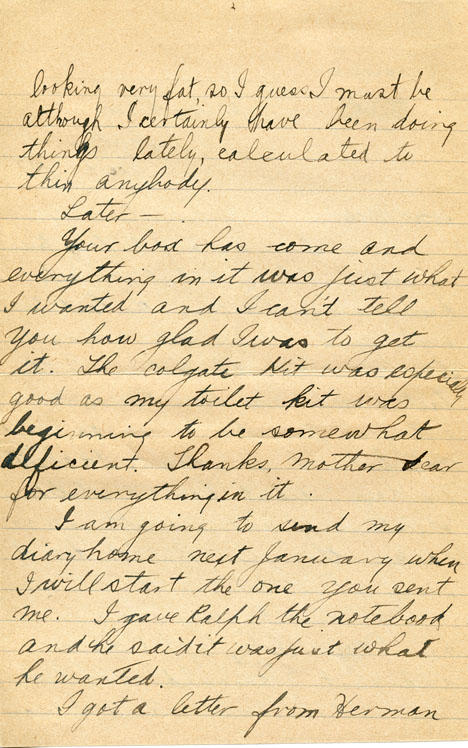 looking very fat, so I guess I must be
although I certainly have been doing
things lately, calculated to
thin anybody.
Later —
Your box has come and
everything in it was just what
I wanted and I can't tell
you how glad I was to get
it. The colgate Kit was especially
good as my toilet kit was
beginning to be somewhat
deficient. Thanks, Mother dear
for everything in it.
I am going to send my
diary home next January when
I will start the one you sent
me. I gave Ralph the notebook
and he said it was just what
he wanted.
I got a letter from Herman